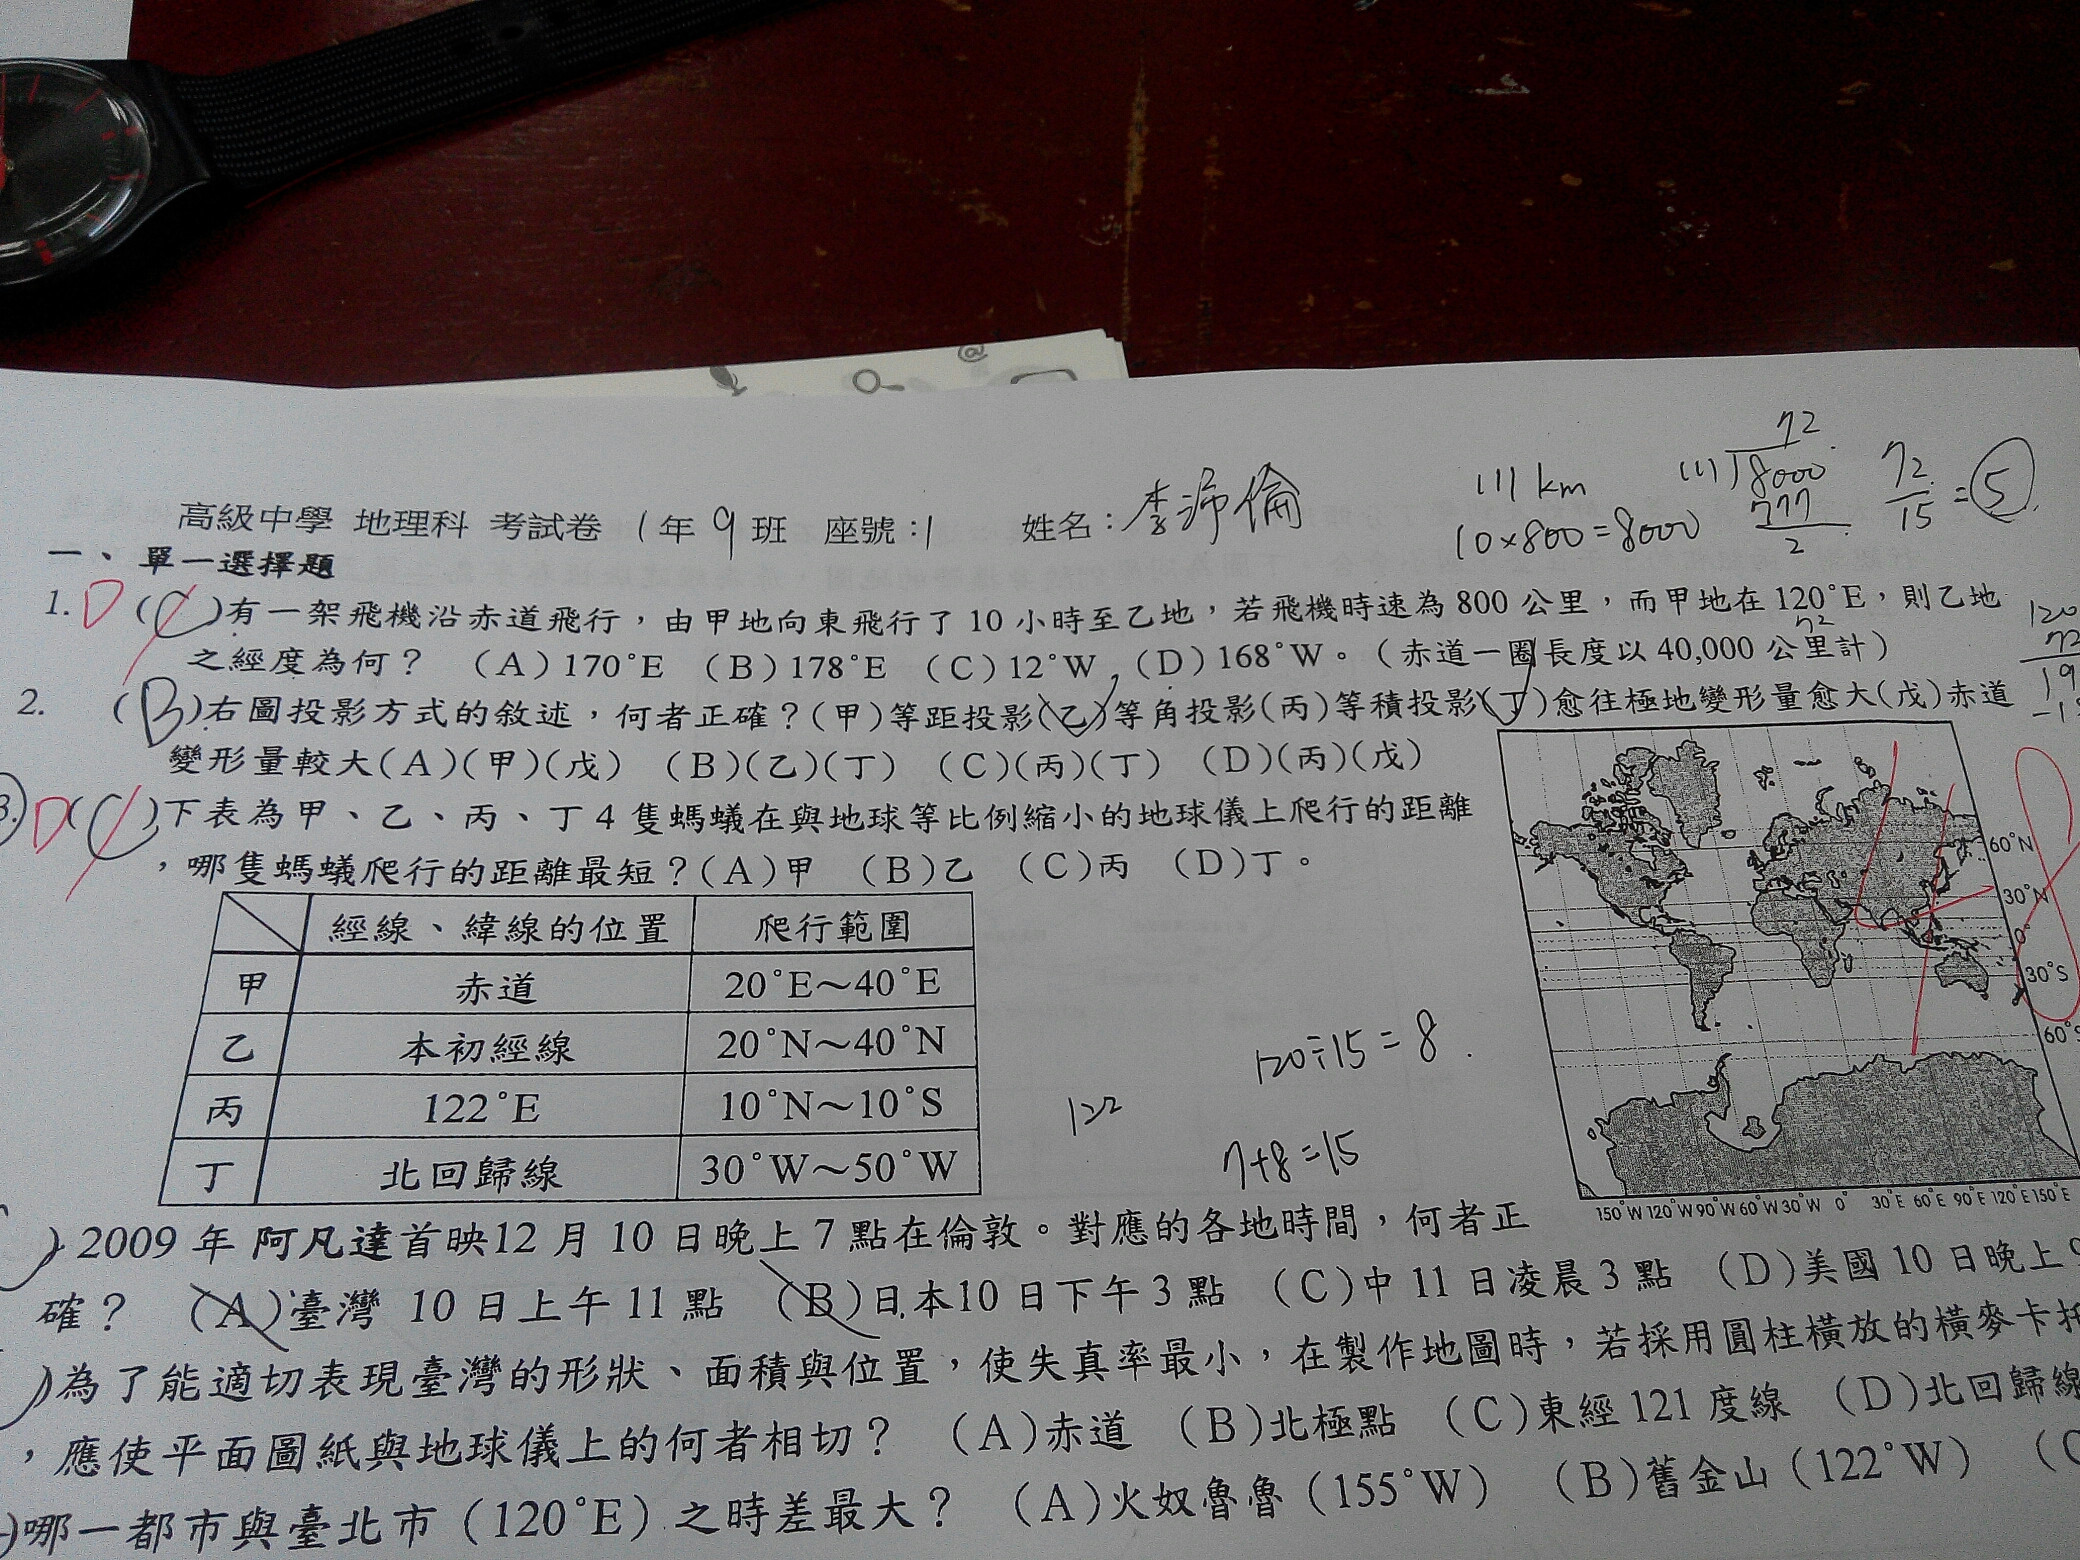 高級中學 地理科 考試卷 1年 9班 座號:1 姓名:李沛倫
111 km
10×800=8000
72
111)8000
777
2
72/15=5
一、單一選擇題
1. D (C)有一架飛機沿赤道飛行，由甲地向東飛行了 10 小時至乙地，若飛機時速為 800 公里，而甲地在 120°E，則乙地
之經度為何？ (A)170°E (B)178°E (C)12°W (D)168°W。(赤道一圈長度以 40,000 公里計)
72
120
72
19
2. (B)右圖投影方式的敘述，何者正確？(甲)等距投影(乙)等角投影(丙)等積投影(丁)愈往極地變形量愈大(戊)赤道
變形量較大(A)(甲)(戊) (B)(乙)(丁) (C)(丙)(丁) (D)(丙)(戊)
3. D(C)下表為甲、乙、丙、丁 4 隻螞蟻在與地球等比例縮小的地球儀上爬行的距離
，哪隻螞蟻爬行的距離最短？(A)甲 (B)乙 (C)丙 (D)丁。
經線、緯線的位置 爬行範圍
甲 赤道 20°E～40°E
乙 本初經線 20°N～40°N
丙 122°E 10°N～10°S
丁 北回歸線 30°W～50°W
120÷15=8
122
7+8=15
60°N
30°N
0°
30°S
60°S
150°W 120°W 90°W 60°W 30°W 0° 30°E 60°E 90°E 120°E 150°E
)2009 年 阿凡達首映12 月 10 日晚上 7 點在倫敦。對應的各地時間，何者正
確？ (A)臺灣 10 日上午 11 點 (B)日本10 日下午 3 點 (C)中 11 日凌晨 3 點 (D)美國 10 日晚上 9
)為了能適切表現臺灣的形狀、面積與位置，使失真率最小，在製作地圖時，若採用圓柱橫放的橫麥卡托
，應使平面圖紙與地球儀上的何者相切？ (A)赤道 (B)北極點 (C)東經 121 度線 (D)北回歸線
)哪一都市與臺北市（120°E）之時差最大？ (A)火奴魯魯（155°W） (B)舊金山（122°W） (C